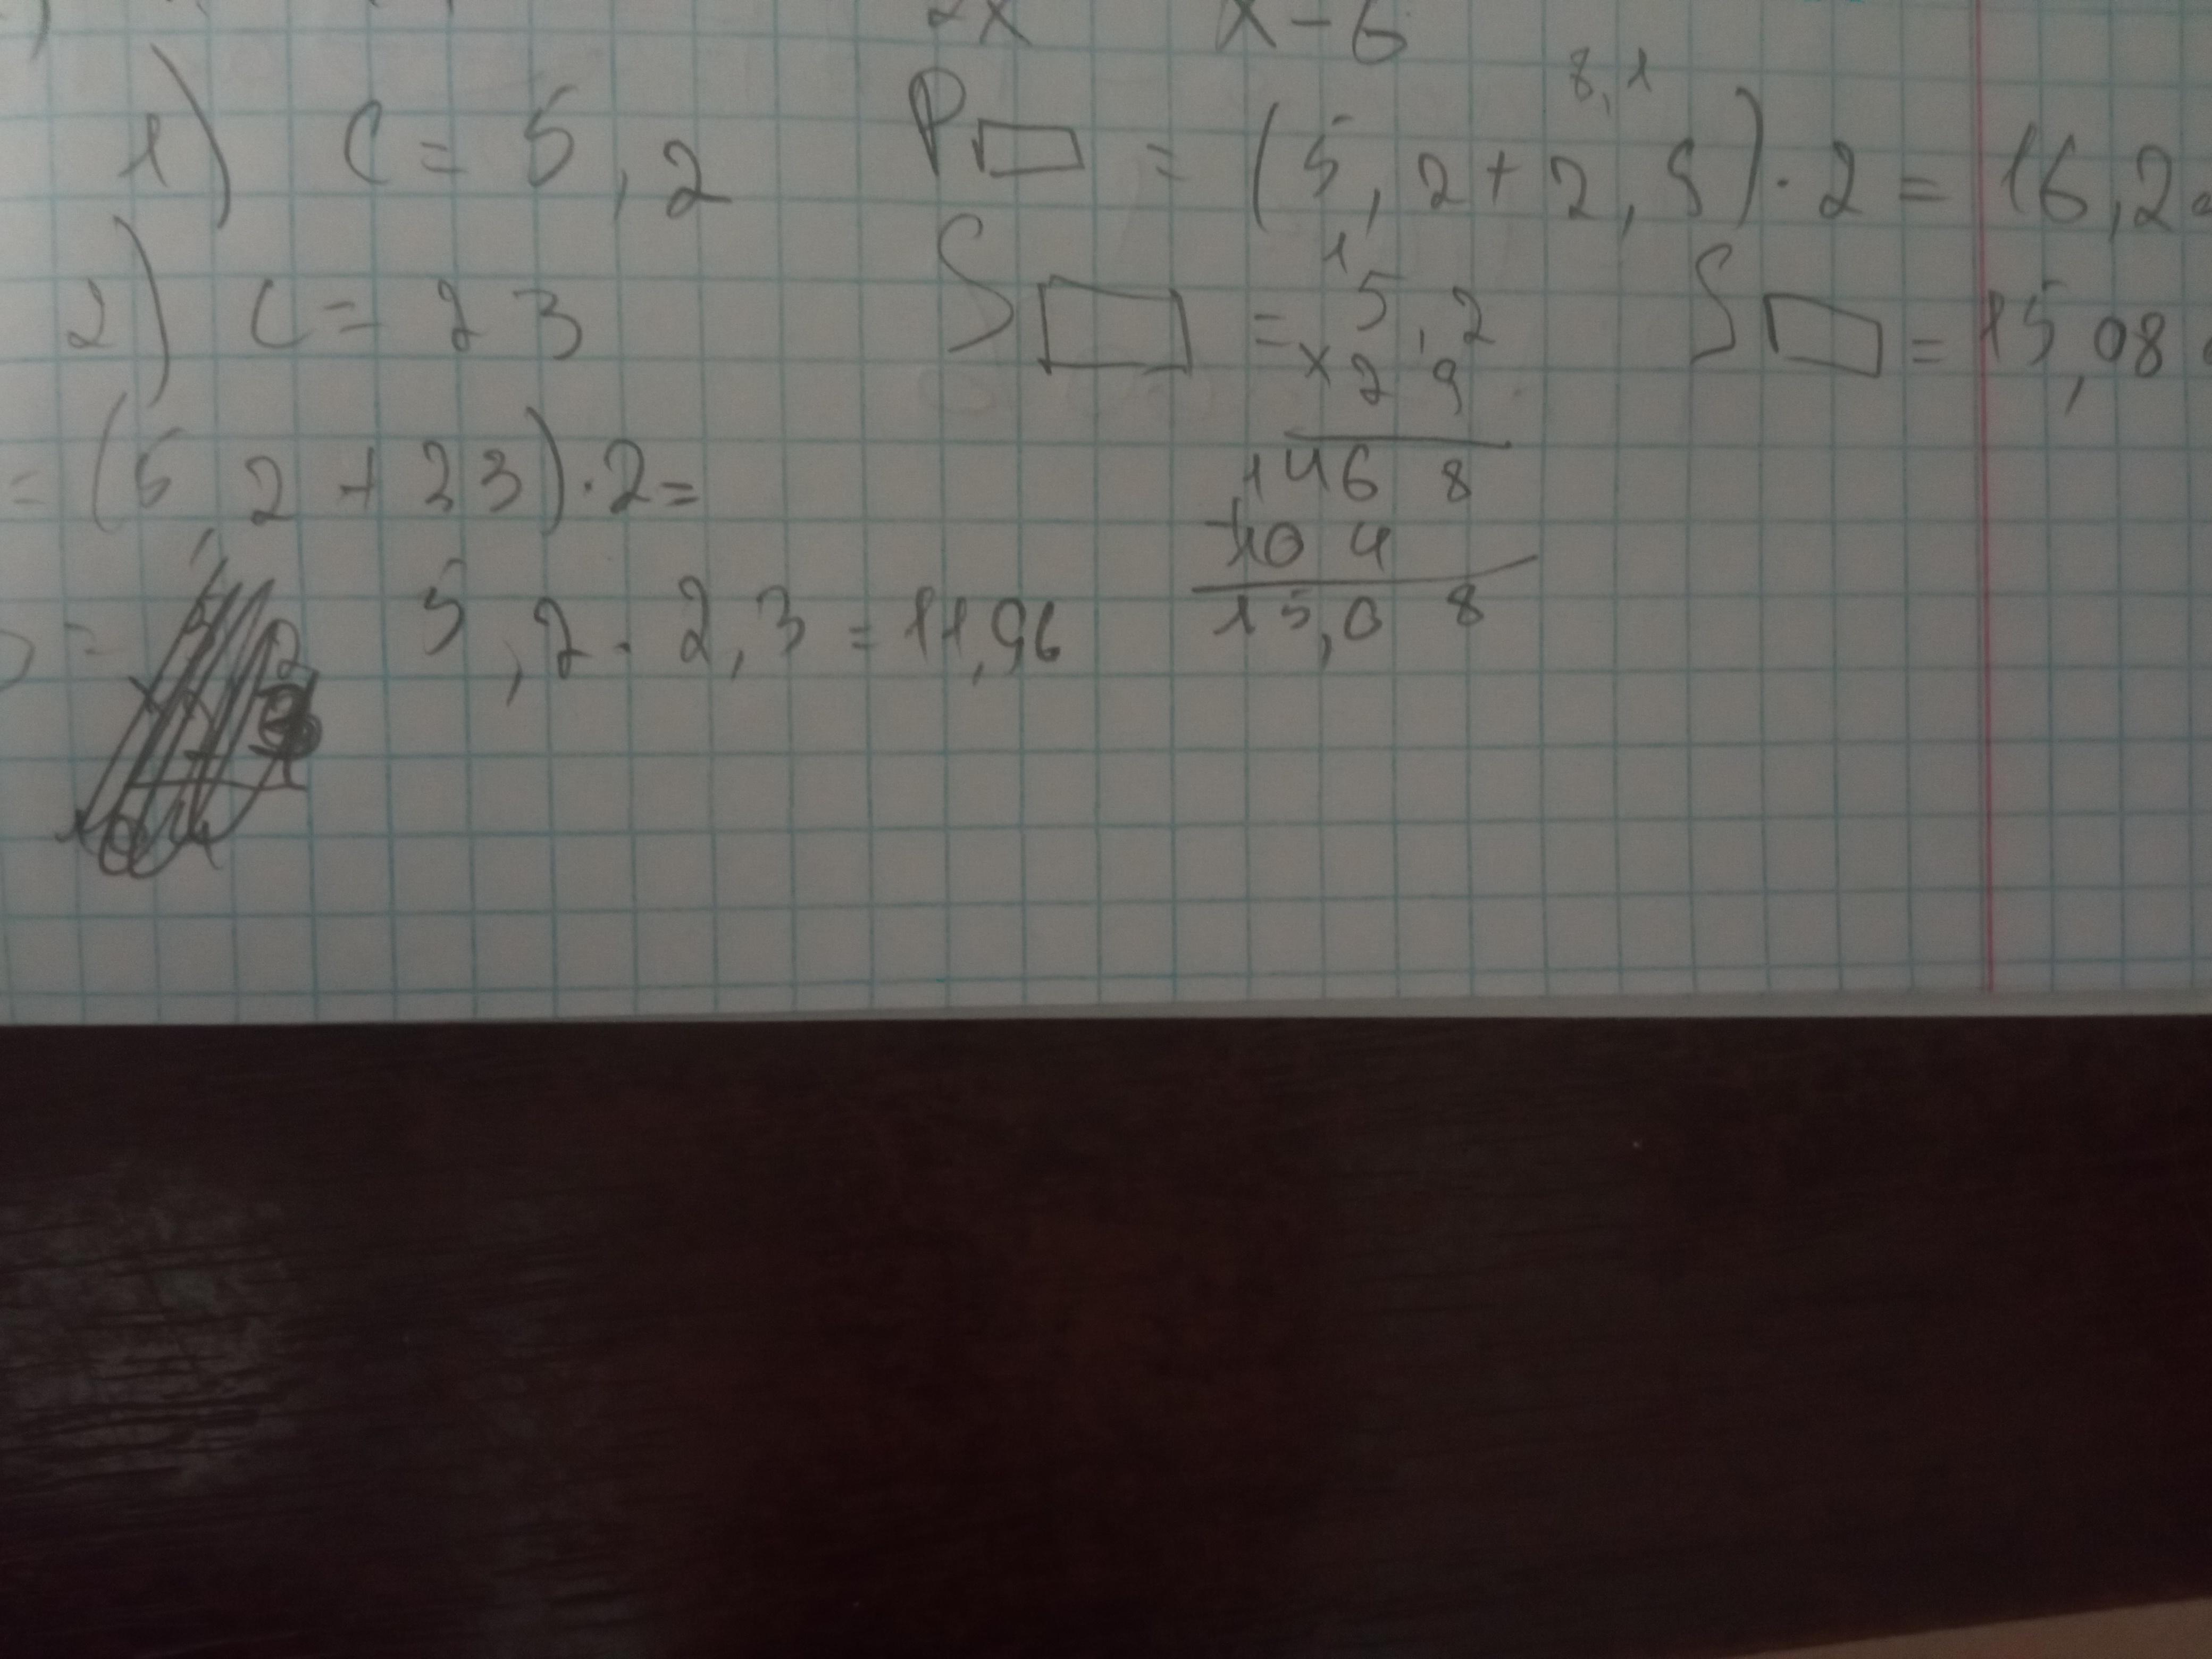 2x x - 6
1) c = 5,2 P▭ = (5,2 + 2,9) · 2 = 16,2
8,1
2) c = 23 S▭ = 5,2 S▭ = 15,08
1
× 2 9
= (5,2 + 23) · 2 =
1 4 6 8
+ 1 0 4
15,0 8
= 5,2 · 2,3 = 11,96